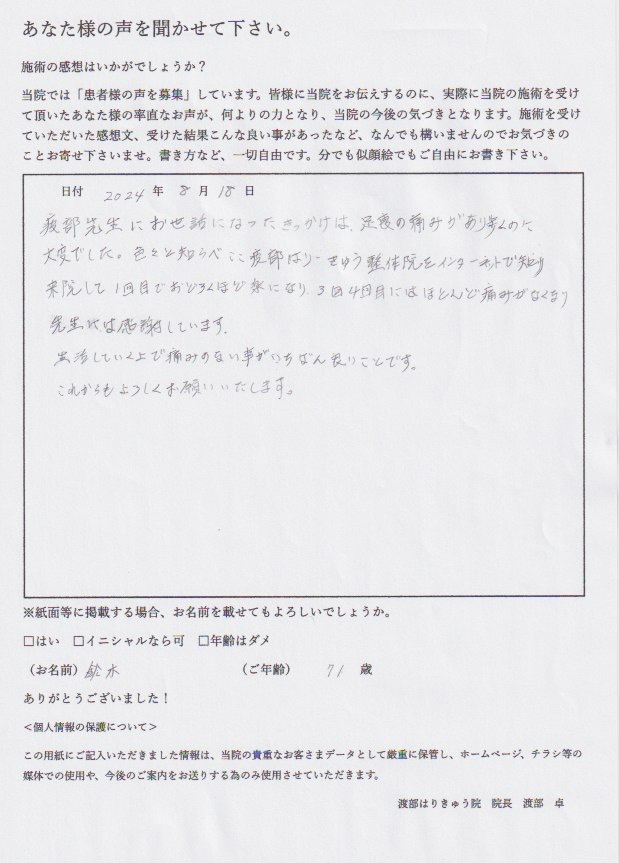 あなた様の声を聞かせて下さい。
施術の感想はいかがでしょうか？
当院では「患者様の声を募集」しています。皆様に当院をお伝えするのに、実際に当院の施術を受け
て頂いたあなた様の率直なお声が、何よりの力となり、当院の今後の気づきとなります。施術を受け
ていただいた感想文、受けた結果こんな良い事があったなど、なんでも構いませんのでお気づきの
ことお寄せ下さいませ。書き方など、一切自由です。分でも似顔絵でもご自由にお書き下さい。
日付 2024 年 8 月 18 日
部先生にお世話になったきっかけは、足裏の痛みがあり歩くのに
大変でした。色々と知らべここ 部はりーきゅう整体院をインターネットで知り
来院して1回目でおどろくほど楽になり 3回4回目にはほとんど痛みがなくなり
先生には感謝しています。
生活していく上で痛みのない事がいちばん良いことです。
これからもよろしくお願いいたします。
※紙面等に掲載する場合、お名前を載せてもよろしいでしょうか。
□はい □イニシャルなら可 □年齢はダメ
（お名前）鈴木 （ご年齢） 71 歳
ありがとうございました！
＜個人情報の保護について＞
この用紙にご記入いただきました情報は、当院の貴重なお客さまデータとして厳重に保管し、ホームページ、チラシ等の
媒体での使用や、今後のご案内をお送りする為のみ使用させていただきます。
渡部はりきゅう院 院長 渡部 卓